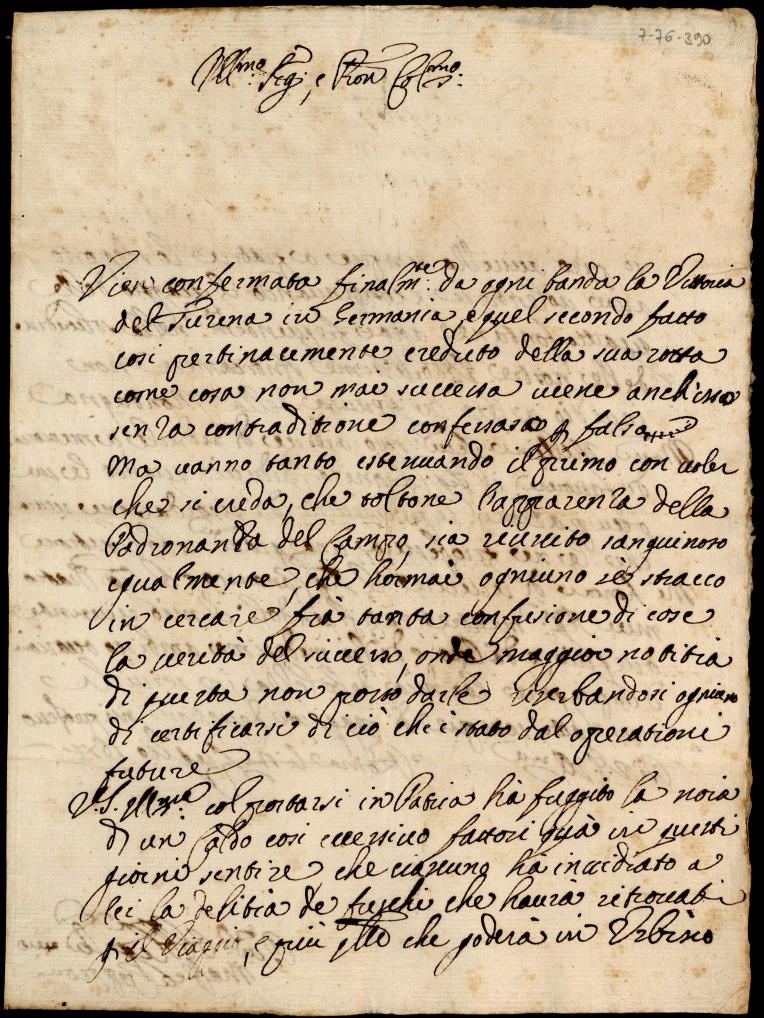 7-76-390
Ill.mo Sig.r, e Pron Col.mo:
Vien confermata finalm.te da ogni banda la Vittoria
del Turena in Germania, e quel secondo fatto
cosi pertinacemente creduto della sua rotta
come cosa non mai successa viene anch'essa
senza contraditione confessata p falsa
Ma vanno tanto estenuando il primo con voler
che si creda, che toltone l'apparenza della
Padronanza del Campo, sia riuscito sanguinoso
egualmente, che hormai ogniuno s'è stracco
in cercare frà tanta confusione di cose
la verità del successo, onde maggior notitia
di questa non posso darle riserbandosi ogniuno
di certificarsi di ciò che è stato dal operationi
future
V.S. Ill.ma col portarsi in Patria hà fuggito la noia
di un Caldo cosi eccessivo fattosi quà in questi
giorni sentire che ciascuno hà invidiato a
lei la delitia de freschi che haurà ritrouati
p il Viaggio, e più qllo che goderà in Urbino